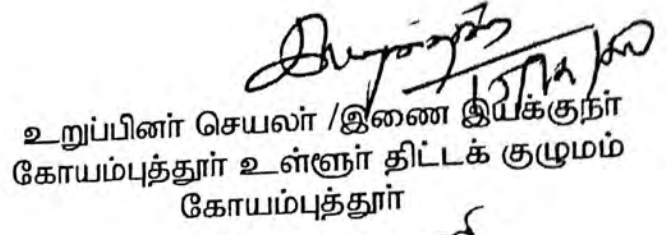 உறுப்பினர் செயலர் /இணை இயக்குநர்
கோயம்புத்தூர் உள்ளூர் திட்டக் குழுமம்
கோயம்புத்தூர்